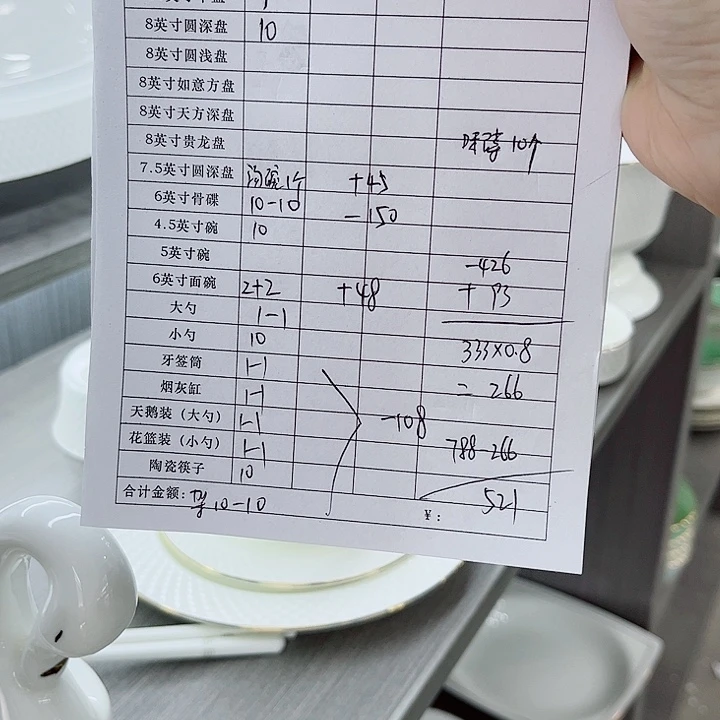 8英寸圆深盘 10
8英寸圆浅盘
8英寸如意方盘
8英寸天方深盘
8英寸贵龙盘 味碟 10个
7.5英寸圆深盘 汤碗 1个 +45
6英寸骨碟 10-10 -150
4.5英寸碗 10
5英寸碗 -426
6英寸面碗 2+2 +48 +93
大勺 1-1
小勺 10 333×0.8
牙签筒 1-1
烟灰缸 1-1 = 266
天鹅装（大勺） 1-1 -108
花篮装（小勺） 1-1 788-266
陶瓷筷子 10
合计金额: 10-10 ¥: 521